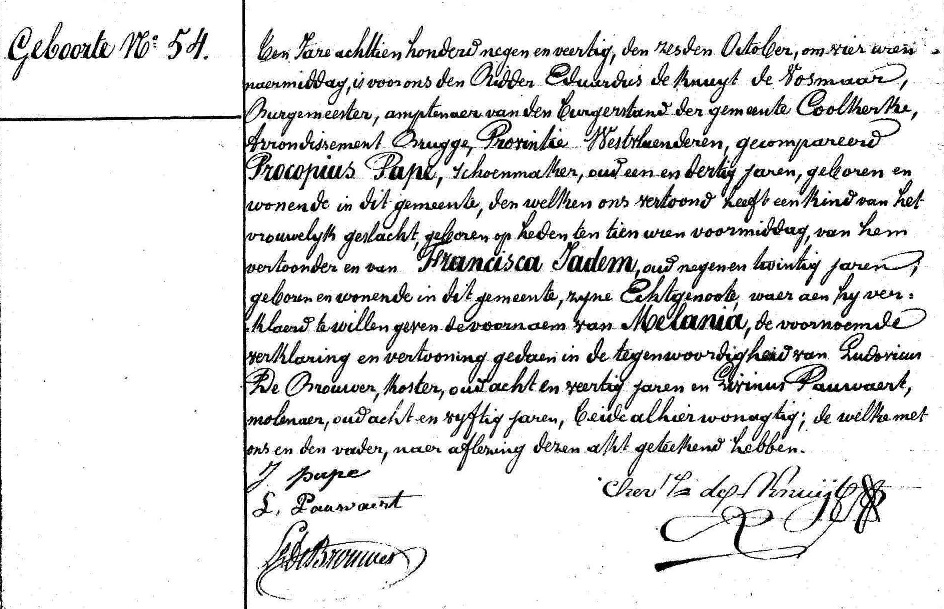 Geboorte No. 54.
Een Jare achttien honderd negen en veertig, den zesden October, om vier uren
naermiddag, is voor ons den Ridder Eduardus de Kruyt de Vosmaar,
Burgemeester, amptenaer van den burgerstand der gemeente Coolkerke,
Arrondissement Brugge, Provintie Westvlaenderen, gecompareerd
Procopius Pape, schoenmaker, oud een en dertig jaren, geboren en
wonende in dit gemeente, den welken ons vertoond heeft een kind van het
vrouwelyk geslacht, geboren op heden ten tien uren voormiddag, van hem
vertoonder en van Francisca Jadem, oud negen en twintig jaren,
geboren en wonende in dit gemeente, zyne Echtgenoote, waer aen hy ver-
klaerd te willen geven de voornaem van Melania, de voornoemde
verklaring en vertooning gedaen in de tegenwoordigheid van Ludovicus
De Brouwer, koster, oud acht en veertig jaren en Livinus Pauwaert,
molenaer, oud acht en vyftig jaren, beide alhier wonagtig; de welke met
ons en den vader, naer aflezing dezen akt geteekend hebben.
J pape
L. Pauwaert
Chev de Kruyt
L de Brouwer